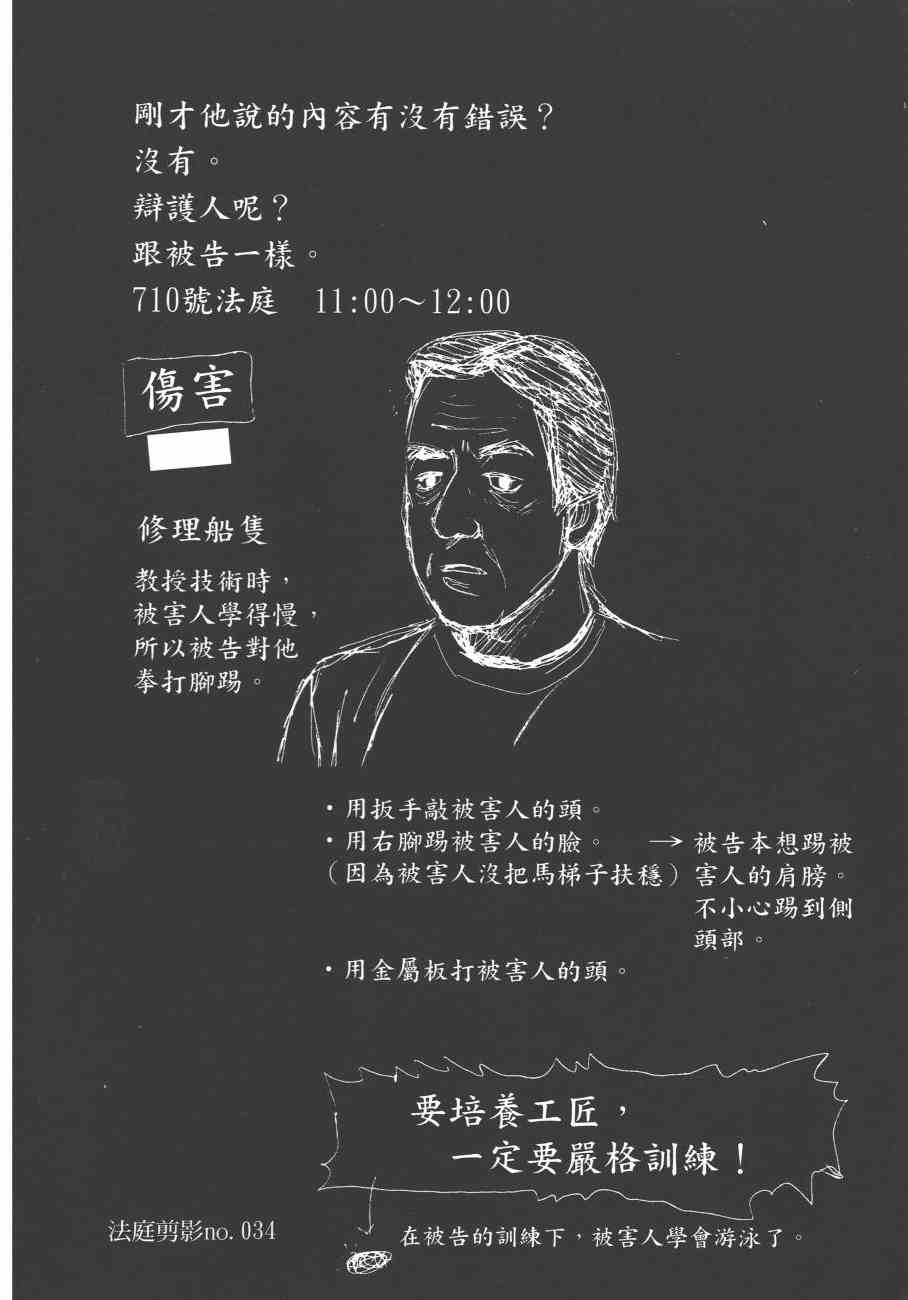 剛才他說的內容有沒有錯誤？
沒有。
辯護人呢？
跟被告一樣。
710號法庭　11:00～12:00
傷害
修理船隻
教授技術時，
被害人學得慢，
所以被告對他
拳打腳踢。
・用扳手敲被害人的頭。
・用右腳踢被害人的臉。
（因為被害人沒把馬梯子扶穩）
→ 被告本想踢被
害人的肩膀。
不小心踢到側
頭部。
・用金屬板打被害人的頭。
要培養工匠，
一定要嚴格訓練！
在被告的訓練下，被害人學會游泳了。
法庭剪影no. 034